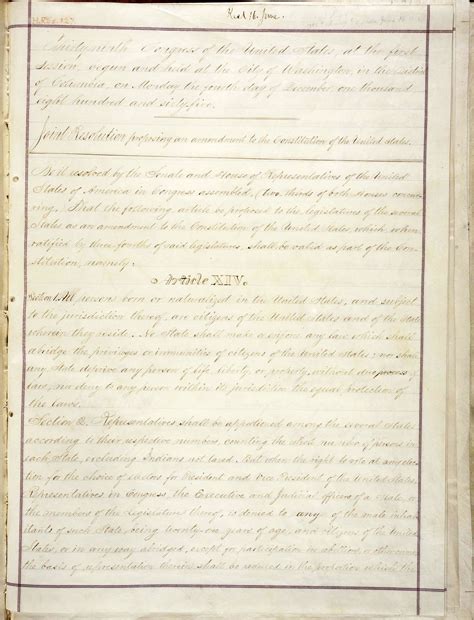 H.Res.127.
Recd 16 June.
Thirty-ninth Congress of the United States, at the first
session, begun and held at the City of Washington, in the District
of Columbia, on Monday the fourth day of December, one thousand
eight hundred and sixty-five.
Joint Resolution proposing an amendment to the Constitution of the United States.
Be it resolved by the Senate and House of Representatives of the United
States of America in Congress assembled, (two-thirds of both Houses concur-
ring,) That the following article be proposed to the legislatures of the several
States as an amendment to the Constitution of the United States, which, when
ratified by three-fourths of said legislatures, shall be valid as part of the Con-
stitution, namely:
Article XIV.
Section 1. All persons born or naturalized in the United States, and subject
to the jurisdiction thereof, are citizens of the United States and of the State
wherein they reside. No State shall make or enforce any law which shall
abridge the privileges or immunities of citizens of the United States; nor shall
any State deprive any person of life, liberty, or property, without due process of
law, nor deny to any person within its jurisdiction the equal protection of
the laws.
Section 2. Representatives shall be apportioned among the several States
according to their respective numbers, counting the whole number of persons in
each State, excluding Indians not taxed. But when the right to vote at any elec-
tion for the choice of electors for President and Vice President of the United States,
Representatives in Congress, the Executive and Judicial officers of a State, or
the members of the Legislature thereof, is denied to any of the male inhab-
itants of such State, being twenty-one years of age, and citizens of the United
States, or in any way abridged, except for participation in rebellion, or other crime,
the basis of representation therein shall be reduced in the proportion which the